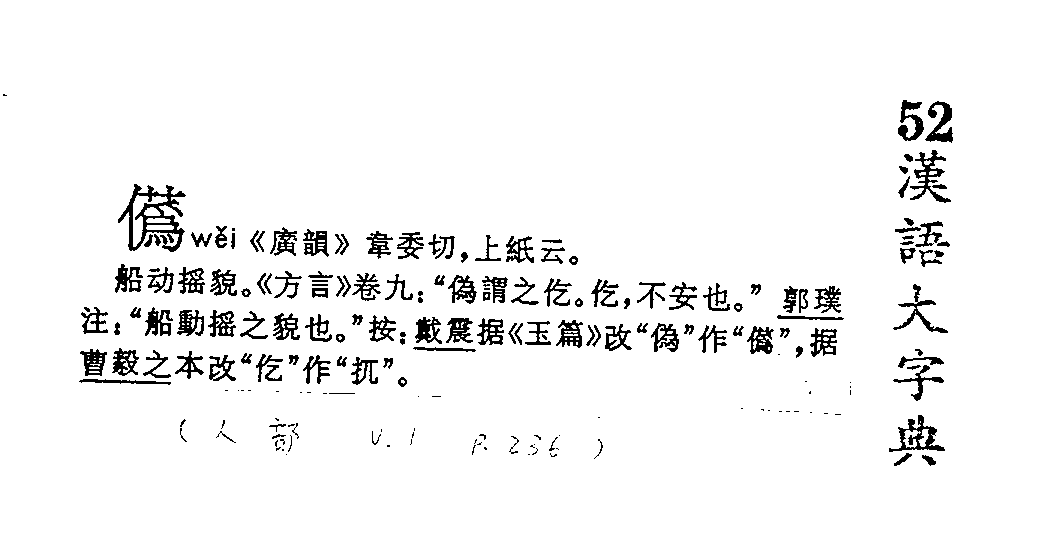 52漢語大字典
儰wěi《廣韻》韋委切，上紙云。
船动摇貌。《方言》卷九：“偽謂之仡。仡，不安也。” 郭璞
注：“船動摇之貌也。”按：戴震据《玉篇》改“偽”作“儰”，据
曹毅之本改“仡”作“扤”。
(人部 V.1 P.236)